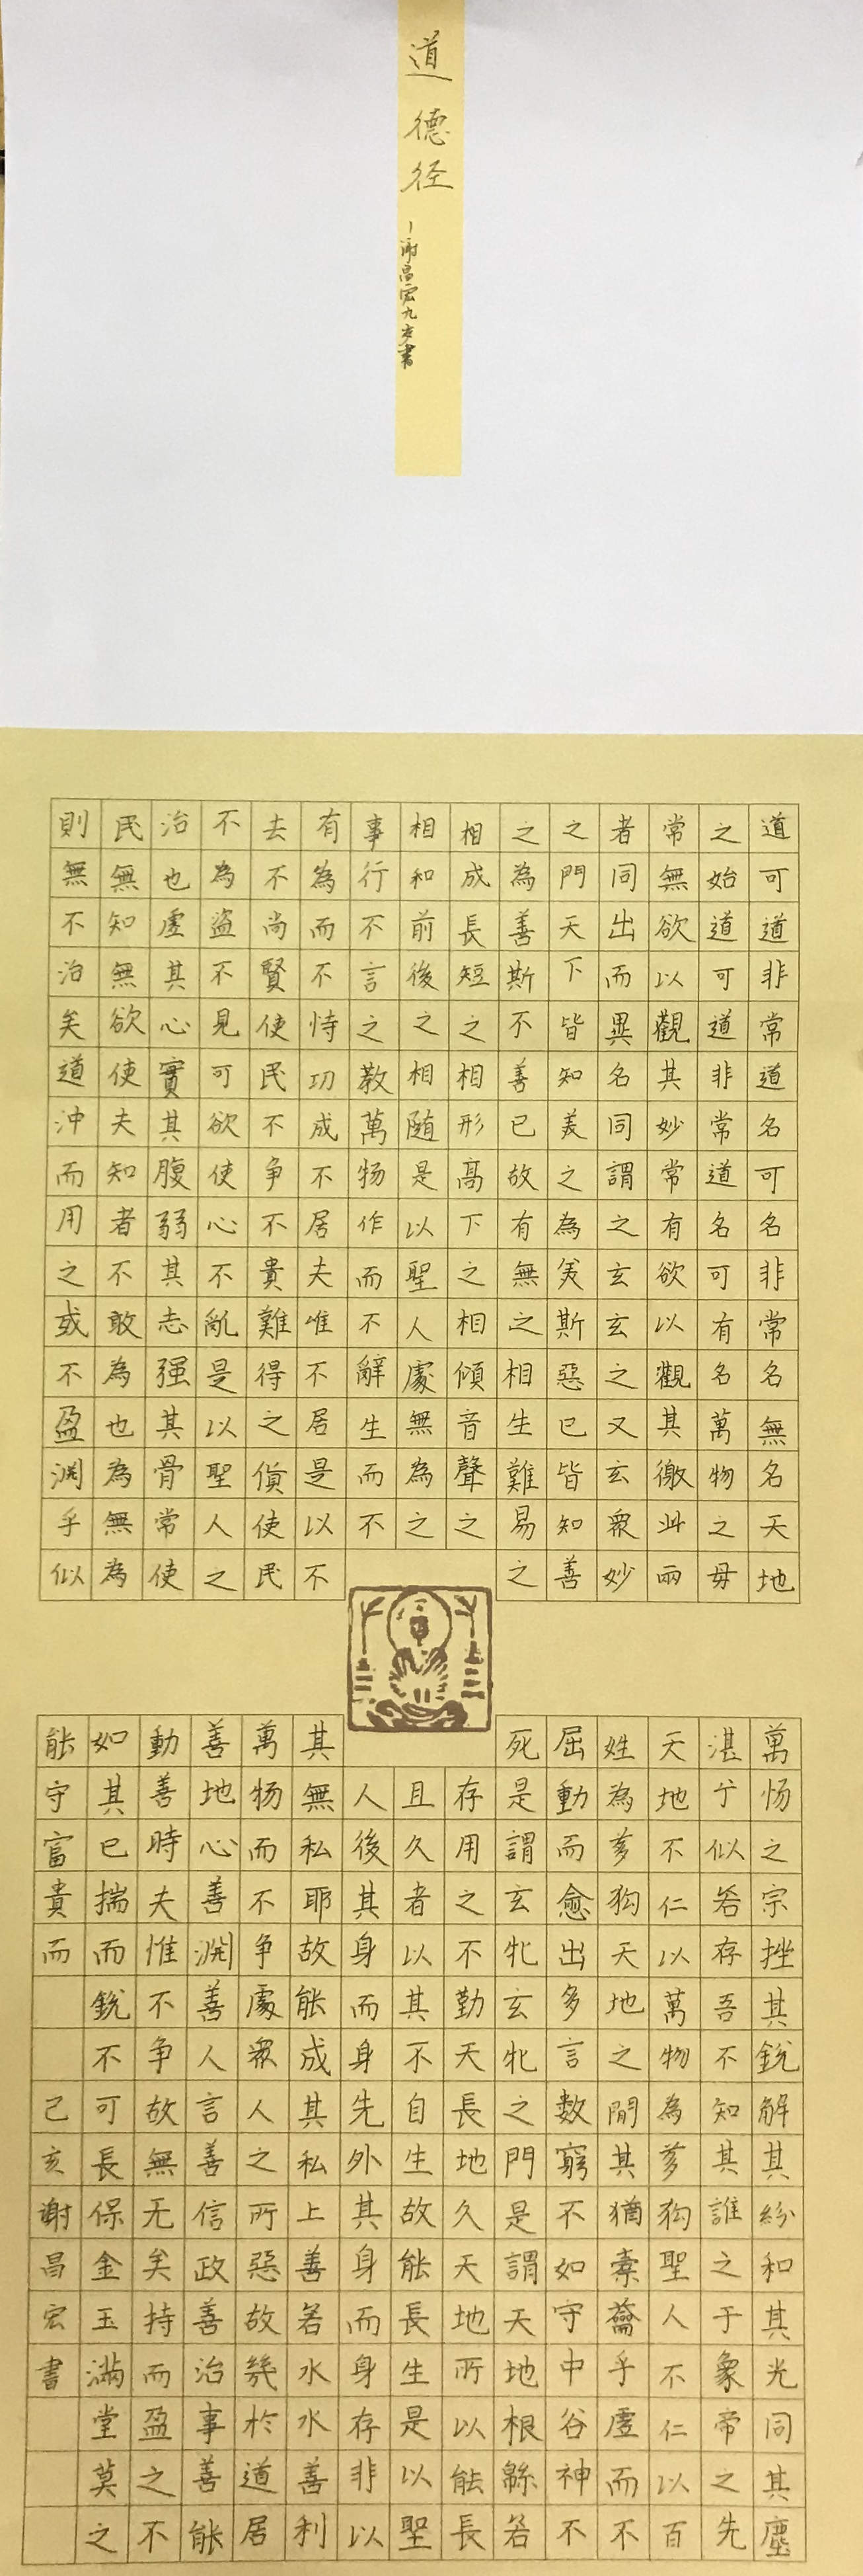 道德径
谢昌宏九岁書
道可道非常道名可名非常名無名天地
之始道可道非常道名可有名萬物之母
常無欲以觀其妙常有欲以觀其徼此兩
者同出而異名同謂之玄玄之又玄衆妙
之門天下皆知美之為美斯惡已皆知善
之為善斯不善已故有無之相生難易之
相成長短之相形高下之相傾音聲之
相和前後之相随是以聖人處無為之
事行不言之教萬物作而不辭生而不
有為而不恃功成不居夫唯不居是以不
去不尚賢使民不争不貴難得之貨使民
不為盗不見可欲使心不亂是以聖人之
治也虚其心實其腹弱其志强其骨常使
民無知無欲使夫知者不敢為也為無為
則無不治矣道沖而用之或不盈淵乎似
萬物之宗挫其銳解其紛和其光同其塵
湛兮似若存吾不知其誰之于象帝之先
天地不仁以萬物為芻狗聖人不仁以百
姓為芻狗天地之間其猶橐籥乎虚而不
屈動而愈出多言数窮不如守中谷神不
死是謂玄牝玄牝之門是謂天地根緜若
存用之不勤天長地久天地所以能長
且久者以其不自生故能長生是以聖
人後其身而身先外其身而身存非以
其無私耶故能成其私上善若水水善利
萬物而不争處衆人之所惡故幾於道居
善地心善淵善人言善信政善治事善能
動善時夫惟不争故無无矣持而盈之不
如其已揣而銳不可長保金玉滿堂莫之
能守富貴而
己亥谢昌宏書